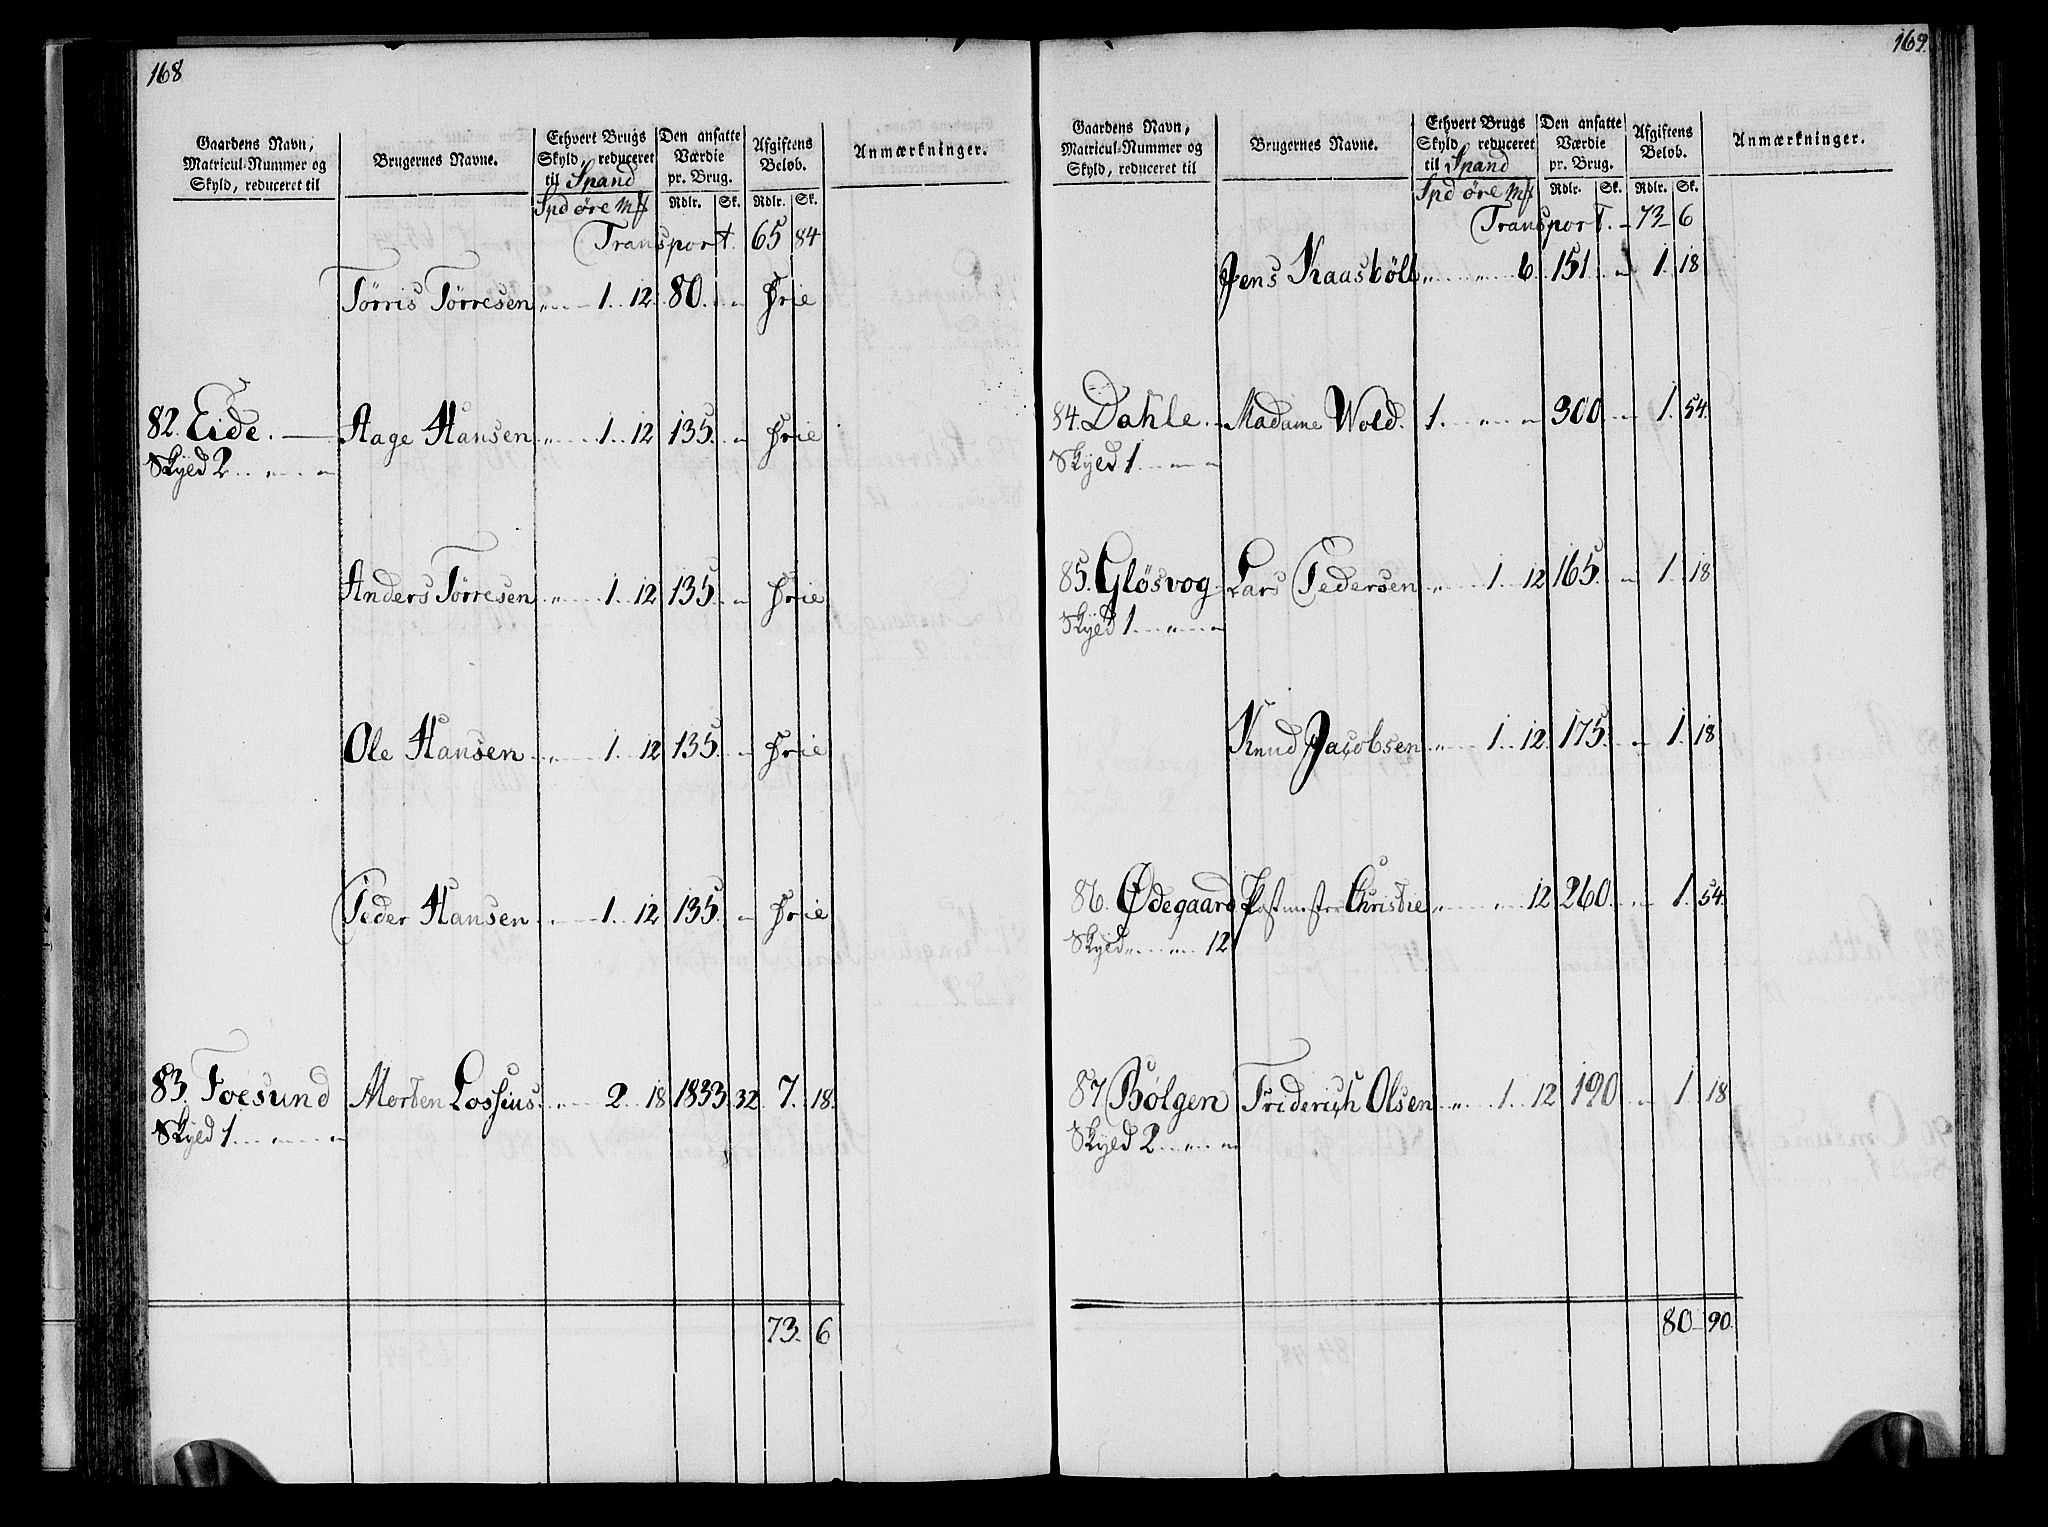 168
Gaardens Navn, Matricul-Nummer og Skyld, reduceret til | Brugernes Navne. | Ethvert Brugs Skyld, reduceret til Spand | Den ansatte Værdie pr. Brug. | Afgiftens Beløb. | Anmærkninger.
Spd øre Mk | Rdlr. | Sk. | Rdlr. | Sk.
Transport. 65 84
Tørris Tørresen „ 1. 12. 80. „ Frie
82. Eide. Aage Hansen „ 1. 12 135. „ Frie
Skyld 2. „ „
Anders Tørresen „ 1. 12 135. „ Frie
Ole Hansen „ 1. 12 135. „ Frie
Peder Hansen „ 1. 12 135. „ Frie
83. Foesund Morten Lossius. „ 2 18 1833 32 7. 18.
Skyld 1. „ „
73. 6
169.
Gaardens Navn, Matricul-Nummer og Skyld, reduceret til | Brugernes Navne. | Ethvert Brugs Skyld, reduceret til Spand | Den ansatte Værdie pr. Brug. | Afgiftens Beløb. | Anmærkninger.
Spd øre Mk | Rdlr. | Sk. | Rdlr. | Sk.
Transport. 73 6
Jens Kaasbøll „ „ 6. 151 „ 1. 18
84. Dahle. Madame Wold. 1. „ „ 300 „ 1. 54.
Skyld 1. „ „
85. Gløsvog Lars Pedersen „ 1. 12 165. „ 1. 18
Skyld 1. „ „
Knud Jacobsen „ 1. 12. 175. „ 1. 18
86. Ødegaard Postmester Christie „ „ 12 260. „ 1. 54.
Skyld „ „ 12
87 Bølgen Friderich Olsen „ 1. 12 190 „ 1 18
Skyld 2. „ „
80 90.